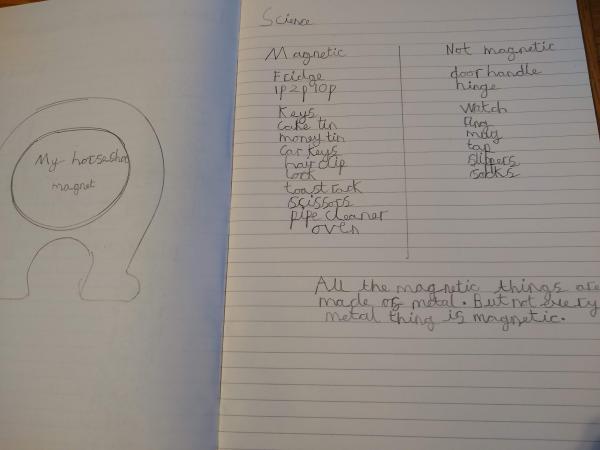 My horseshoe
magnet
Science
Magnetic
Fridge
1p 2p 10p
Keys
cake tin
money tin
car keys
hair clip
lock
toast rack
scissors
pipe cleaner
oven
Not magnetic
door handle
hinge
watch
ring
mug
tap
slippers
socks
All the magnetic things are
made of metal. But not every
metal thing is magnetic.